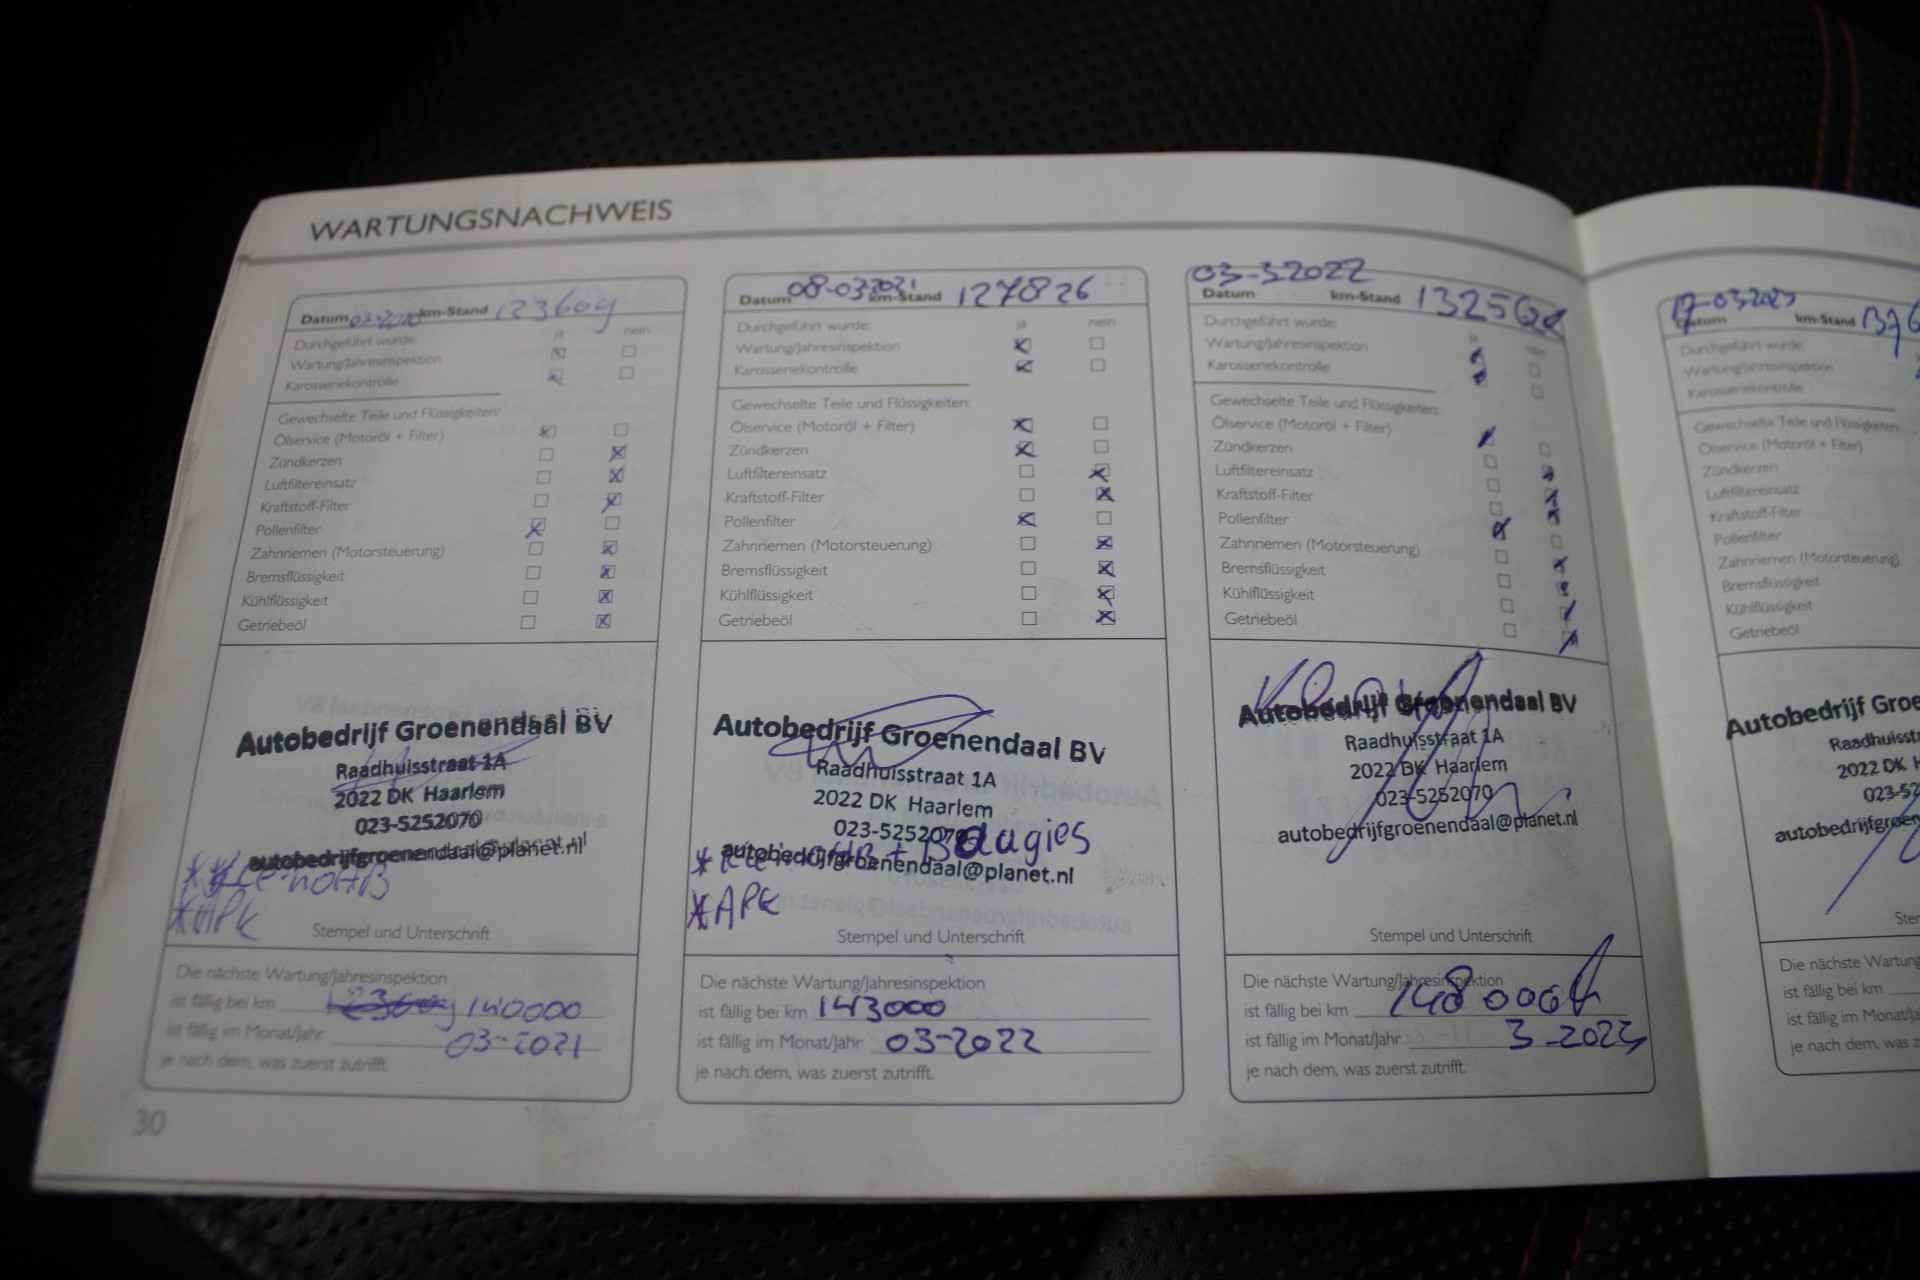 WARTUNGSNACHWEIS
Datum km-Stand 123609
Durchgeführt wurde: ja nein
Wartung/Jahresinspektion
Karosseriekontrolle
Gewechselte Teile und Flüssigkeiten:
Ölservice (Motoröl + Filter)
Zündkerzen
Luftfiltereinsatz
Kraftstoff-Filter
Pollenfilter
Zahnriemen (Motorsteuerung)
Bremsflüssigkeit
Kühlflüssigkeit
Getriebeöl
Autobedrijf Groenendaal BV
Raadhuisstraat 1A
2022 DK Haarlem
023-5252070
autobedrijfgroenendaal@planet.nl
*APK
Stempel und Unterschrift
Die nächste Wartung/Jahresinspektion
ist fällig bei km 140000
ist fällig im Monat/Jahr 03-2021
je nach dem, was zuerst zutrifft.
30
Datum 08-03-2021 km-Stand 127826
Durchgeführt wurde: ja nein
Wartung/Jahresinspektion
Karosseriekontrolle
Gewechselte Teile und Flüssigkeiten:
Ölservice (Motoröl + Filter)
Zündkerzen
Luftfiltereinsatz
Kraftstoff-Filter
Pollenfilter
Zahnriemen (Motorsteuerung)
Bremsflüssigkeit
Kühlflüssigkeit
Getriebeöl
Autobedrijf Groenendaal BV
Raadhuisstraat 1A
2022 DK Haarlem
023-5252070
autobedrijfgroenendaal@planet.nl
*APK
Stempel und Unterschrift
Die nächste Wartung/Jahresinspektion
ist fällig bei km 143000
ist fällig im Monat/Jahr 03-2022
je nach dem, was zuerst zutrifft.
03-3-2022
Datum km-Stand
Durchgeführt wurde: ja nein
Wartung/Jahresinspektion
Karosseriekontrolle
Gewechselte Teile und Flüssigkeiten:
Ölservice (Motoröl + Filter)
Zündkerzen
Luftfiltereinsatz
Kraftstoff-Filter
Pollenfilter
Zahnriemen (Motorsteuerung)
Bremsflüssigkeit
Kühlflüssigkeit
Getriebeöl
Autobedrijf Groenendaal BV
Raadhuisstraat 1A
2022 DK Haarlem
023-5252070
autobedrijfgroenendaal@planet.nl
Stempel und Unterschrift
Die nächste Wartung/Jahresinspektion
ist fällig bei km 148000
ist fällig im Monat/Jahr 3-2023
je nach dem, was zuerst zutrifft.
17-03-2023
Datum km-Stand
Durchgeführt wurde:
Wartung/Jahresinspektion
Karosseriekontrolle
Gewechselte Teile und Flüssigkeiten:
Ölservice (Motoröl + Filter)
Zündkerzen
Luftfiltereinsatz
Kraftstoff-Filter
Pollenfilter
Zahnriemen (Motorsteuerung)
Bremsflüssigkeit
Kühlflüssigkeit
Getriebeöl
Autobedrijf Groe
Raadhuisstr
2022 DK H
023-52
autobedrijfgroen
Stem
Die nächste Wartung
ist fällig bei km
ist fällig im Monat/Ja
je nach dem, was z